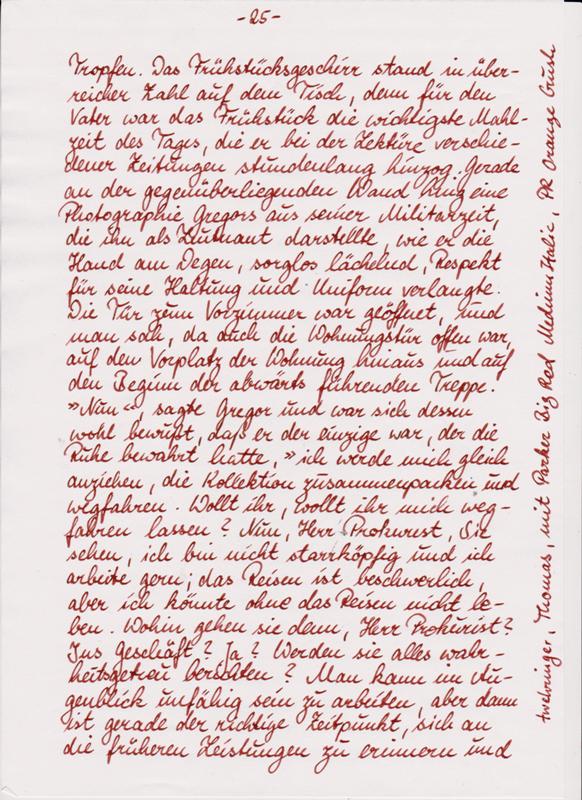 -25-
Tropfen. Das Frühstücksgeschirr stand in über-
reicher Zahl auf dem Tisch, denn für den
Vater war das Frühstück die wichtigste Mahl-
zeit des Tages, die er bei der Lektüre verschie-
dener Zeitungen stundenlang hinzog. Gerade
an der gegenüberliegenden Wand hing eine
Photographie Gregors aus seiner Militärzeit,
die ihn als Leutnant darstellte, wie er die
Hand am Degen, sorglos lächelnd, Respekt
für seine Haltung und Uniform verlangte.
Die Tür zum Vorzimmer war geöffnet, und
man sah, da auch die Wohnungstür offen war,
auf den Vorplatz der Wohnung hinaus und auf
den Beginn der abwärts führenden Treppe.
»Nun«, sagte Gregor und war sich dessen
wohl bewußt, daß er der einzige war, der die
Ruhe bewahrt hatte, »ich werde mich gleich
anziehen, die Kollektion zusammenpacken und
wegfahren. Wollt ihr, wollt ihr mich weg-
fahren lassen? Nun, Herr Prokurist, Sie
sehen, ich bin nicht starrköpfig und ich
arbeite gern; das Reisen ist beschwerlich,
aber ich könnte ohne das Reisen nicht le-
ben. Wohin gehen sie denn, Herr Prokurist?
Ins Geschäft? Ja? Werden sie alles wahr-
heitsgetreu berichten? Man kann im Au-
genblick unfähig sein zu arbeiten, aber dann
ist gerade der richtige Zeitpunkt, sich an
die früheren Leistungen zu erinnern und
Thomas, mit Parker Big Red Medium Italic, PR Orange Crush